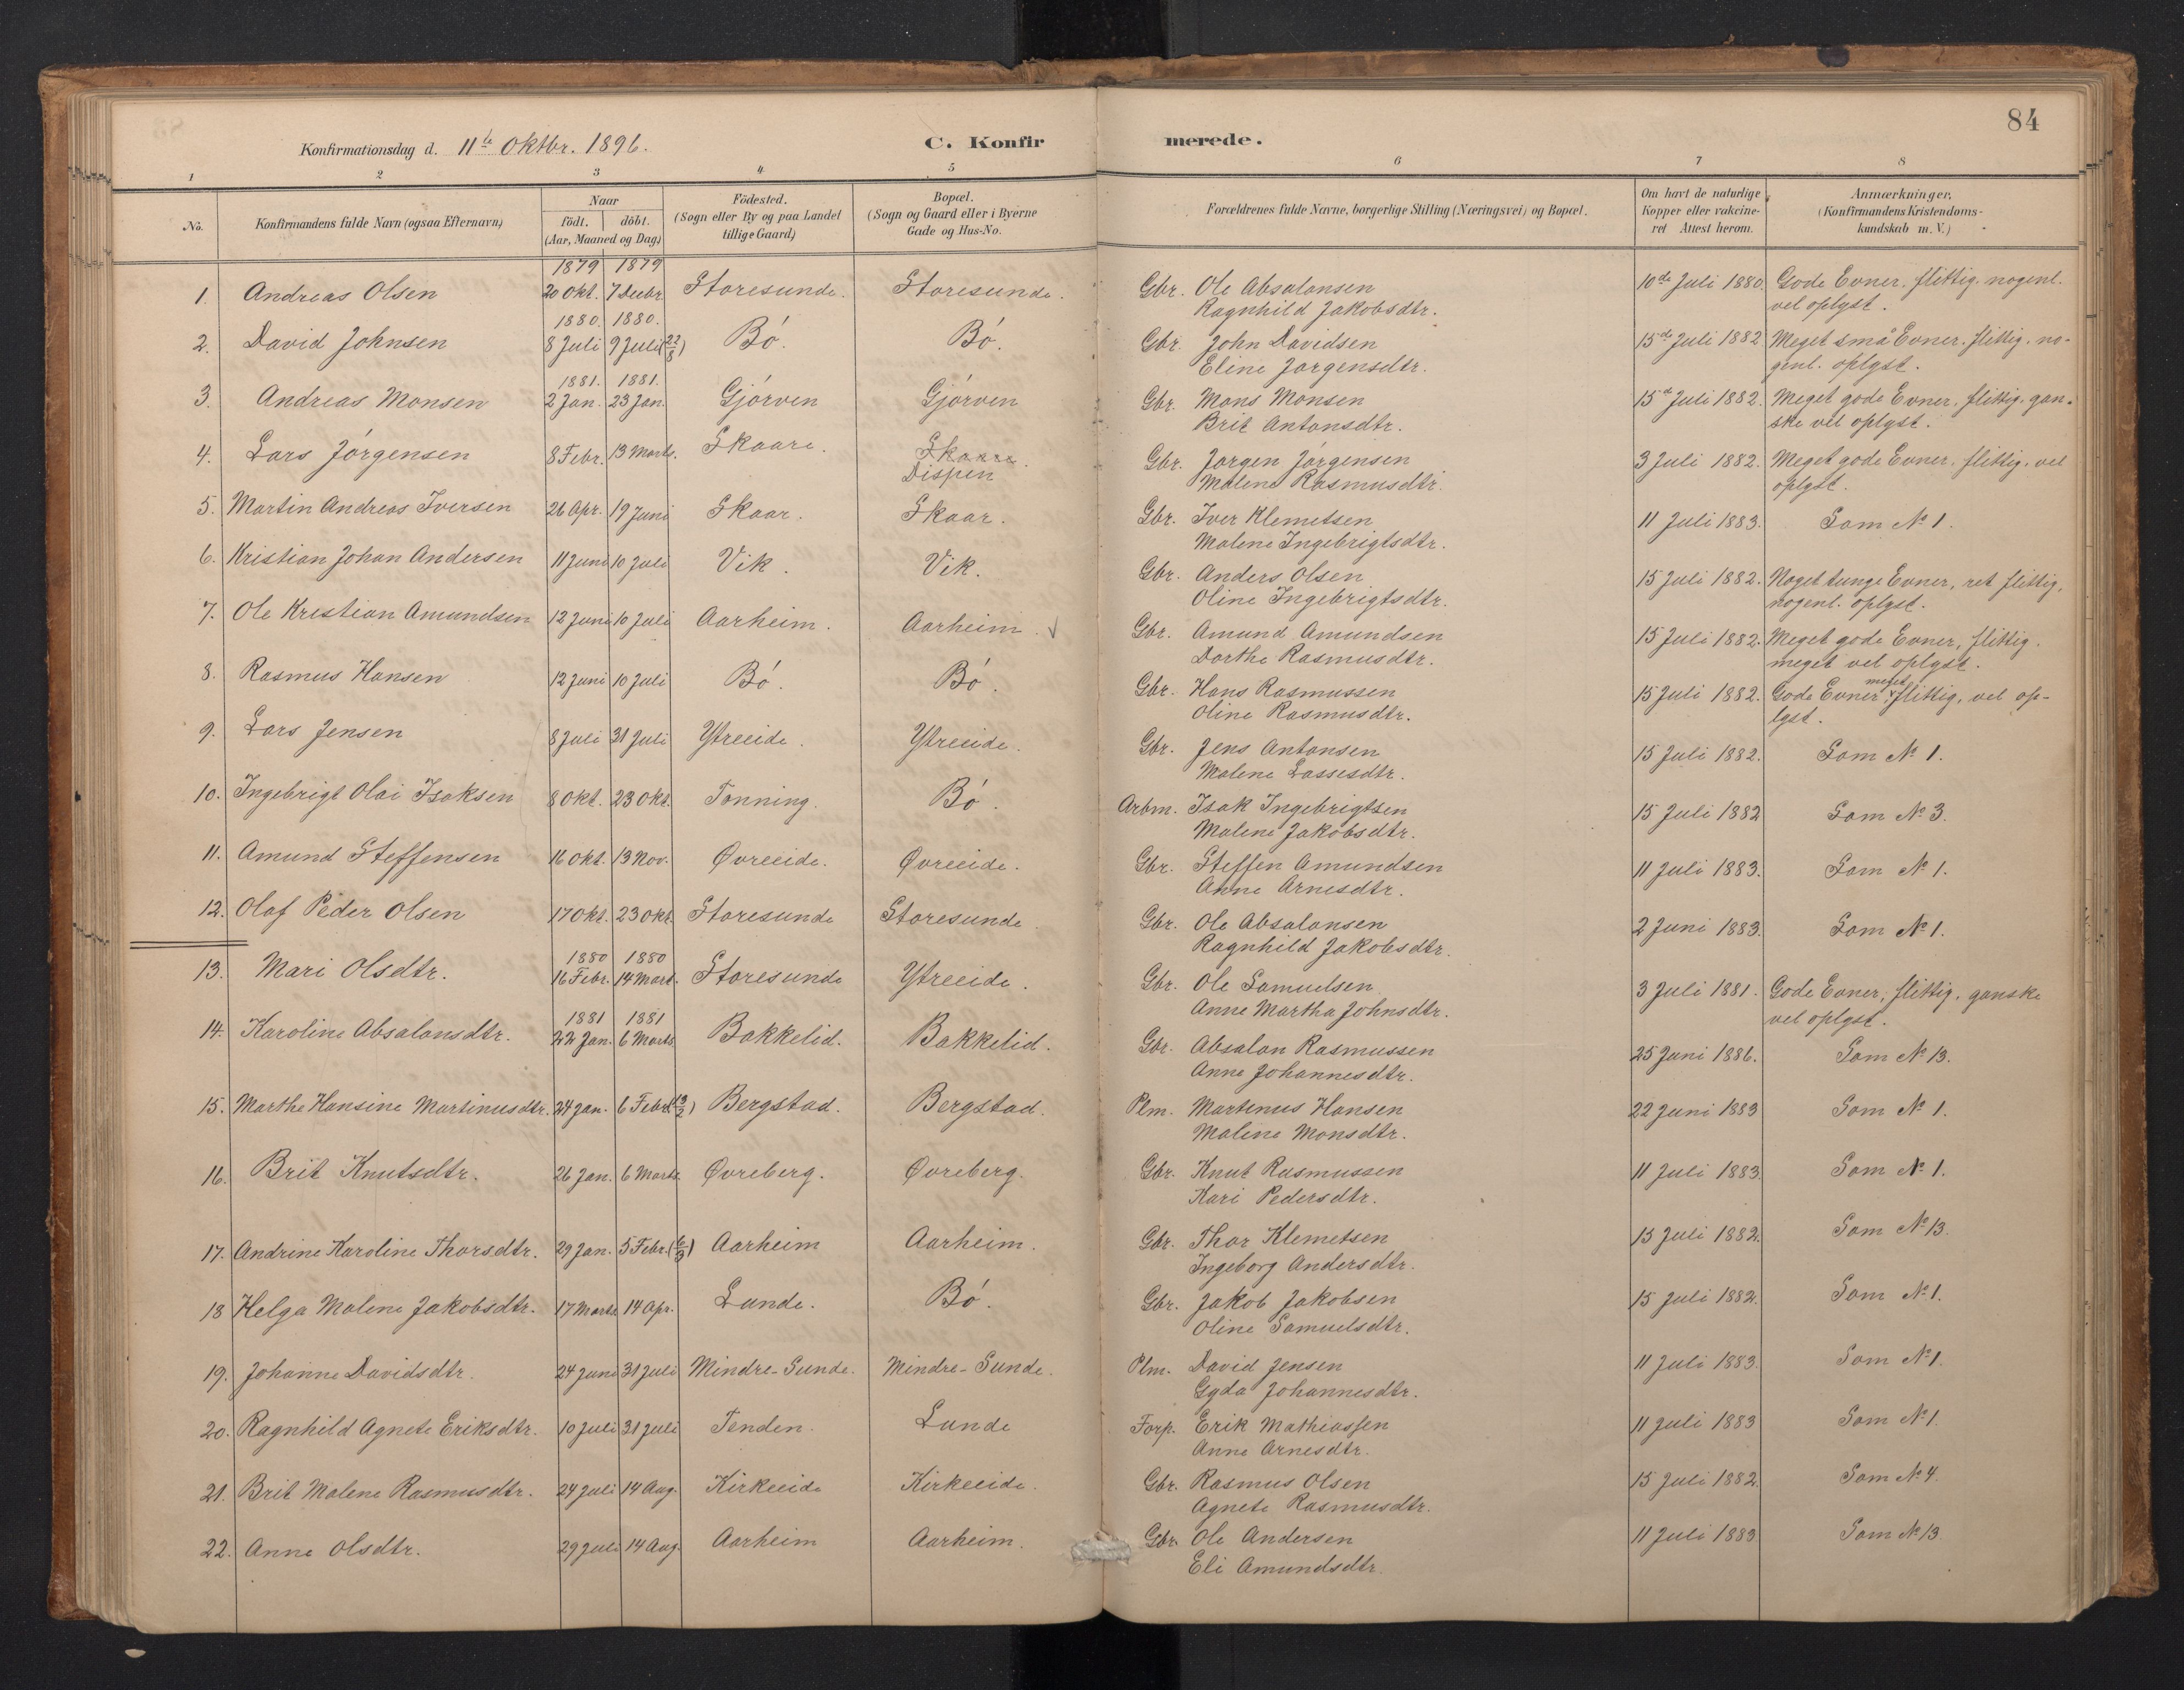 84
Konfirmationsdag d. 11te Oktbr. 1896.
C. Konfirmerede.
1 2 3 4 5 6 7 8
No.
Konfirmandens fulde Navn (ogsaa Efternavn)
Naar
födt. döbt.
(Aar, Maaned og Dag)
Födested.
(Sogn eller By og paa Landet
tillige Gaard)
Bopæl.
(Sogn og Gaard eller i Byerne
Gade og Hus-No.
Forældrenes fulde Navne, borgerlige Stilling (Næringsvei) og Bopæl.
Om havt de naturlige
Kopper eller vakcine-
ret Attest herom.
Anmærkninger,
(Konfirmandens Kristendoms-
kundskab m. V.)
1879 1879
1. Andreas Olsen 20 Okt. 7 Decbr. Storesunde. Storesunde. Gbr. Ole Absalonsen 10de Juli 1880. Gode Evner, flittig. nogenl.
Ragnhild Jakobsdtr. vel oplyst.
1880. 1880.
2. David Johnsen 8 Juli 9 Juli (22/8) Bó. Bó. Gbr. John Davidsen 15de Juli 1882 Meget små Evner. flittig. no-
Eline Jørgensdtr. genl. oplyst.
1881. 1881.
3. Andreas Monsen 2 Jan. 23 Jan. Gjórven Gjórven Gbr. Mons Monsen 15de Juli 1882. Meget gode Evner, flittig, gan-
Brit Antonsdtr. ske vel oplyst.
4. Lars Jórgensen 8 Febr. 13 Marts. Skaare. Skaare. Gbr. Jørgen Jørgensen 3 Juli 1882. Meget gode Evner, flittig. vel
Dispen Malene Rasmusdtr. oplyst.
5. Martin Andreas Iversen 26 Apr. 19 Juni Skaar. Skaar. Gbr. Iver Klemetsen 11 Juli 1883. Som No 1.
Malene Ingebrigtsdtr.
6. Kristian Johan Andersen 11 Juni 10 Juli Vik. Vik. Gbr. Anders Olsen 15 Juli 1882. Noget tunge Evner, ret flittig,
Oline Ingebrigtsdtr. nogenl. oplyst.
7. Ole Kristian Amundsen 12 Juni 10 Juli Aarheim. Aarheim. Gbr. Amund Amundsen 15 Juli 1882. Meget gode Evner, flittig.
Dorthe Rasmusdtr. meget vel oplyst.
8. Rasmus Hansen 12 Juni 10 Juli Bó. Bó. Gbr. Hans Rasmussen 15 Juli 1882. Gode Evner, meget flittig, vel op-
Oline Rasmusdtr. lyst.
9. Lars Jensen 8 Juli 31 Juli Ytreeide. Ytreeide. Gbr. Jens Antonsen 15 Juli 1882. Som No 1.
Malene Lassesdtr.
10. Ingebrigt Olai Isaksen 8 Okt. 23 Okt. Tonning. Bó. Arbm. Isak Ingebrigtsen 15 Juli 1882 Som No 3.
Malene Jakobsdtr.
11. Amund Steffensen 16 Okt. 13 Nov. Øvreeide. Øvreeide. Gbr. Steffen Amundsen 11 Juli 1883. Som No 1.
Anne Arnesdtr.
12. Olaf Peder Olsen 17 Okt. 23 Okt. Storesunde Storesunde Gbr. Ole Absalonsen 2 Juni 1883. Som No 1.
Ragnhild Jakobsdtr.
1880 1880
13. Mari Olsdtr. 16 Febr. 14 Mart. Storesunde Ytreeide. Gbr. Ole Samuelsen 3 Juli 1881. Gode Evner, flittig, ganske
Anne Martha Johnsdtr. vel oplyst.
1881 1881
14. Karoline Absalonsdtr. 22 Jan. 6 Marts Bakkelid. Bakkelid. Gbr. Absalon Rasmussen 25 Juni 1886. Som No 13.
Anne Johannesdtr.
15. Marthe Hansine Martinusdtr. 24 Jan. 6 Febr. (13/2) Bergstad. Bergstad. Plm. Martinus Hansen 22 Juni 1883 Som No 1.
Malene Monsdtr.
16. Brit Knutsdtr. 26 Jan. 6 Marts. Øvreberg. Øvreberg. Gbr. Knut Rasmussen 11 Juli 1883. Som No 1.
Kari Pedersdtr.
17. Andrine Karoline Thorsdtr. 29 Jan. 5 Febr. (6/3) Aarheim Aarheim. Gbr. Thor Klemetsen 15 Juli 1882. Som No 13.
Ingeborg Andersdtr.
18 Helga Malene Jakobsdtr. 17 Marts 14 Apr. Lunde. Bó. Gbr. Jakob Jakobsen 15 Juli 1882. Som No 1.
Oline Samuelsdtr.
19. Johanne Davidsdtr. 24 Juni 31 Juli Mindre-Sunde. Mindre-Sunde. Plm. David Jensen 11 Juli 1883. Som No 1.
Gyda Johannesdtr.
20. Ragnhild Agnete Eriksdtr. 10 Juli 31 Juli Tenden. Lunde Forp. Erik Mathiassen 11 Juli 1883 Som No 1.
Anne Arnesdtr.
21. Brit Malene Rasmusdtr. 24 Juli 14 Aug. Kirkeeide Kirkeeide. Gbr. Rasmus Olsen 15 Juli 1882. Som No 4.
Agnete Rasmusdtr.
22. Anne Olsdtr. 29 Juli 14 Aug. Aarheim Aarheim. Gbr. Ole Andersen 11 Juli 1883 Som No 13.
Eli Amundsdtr.